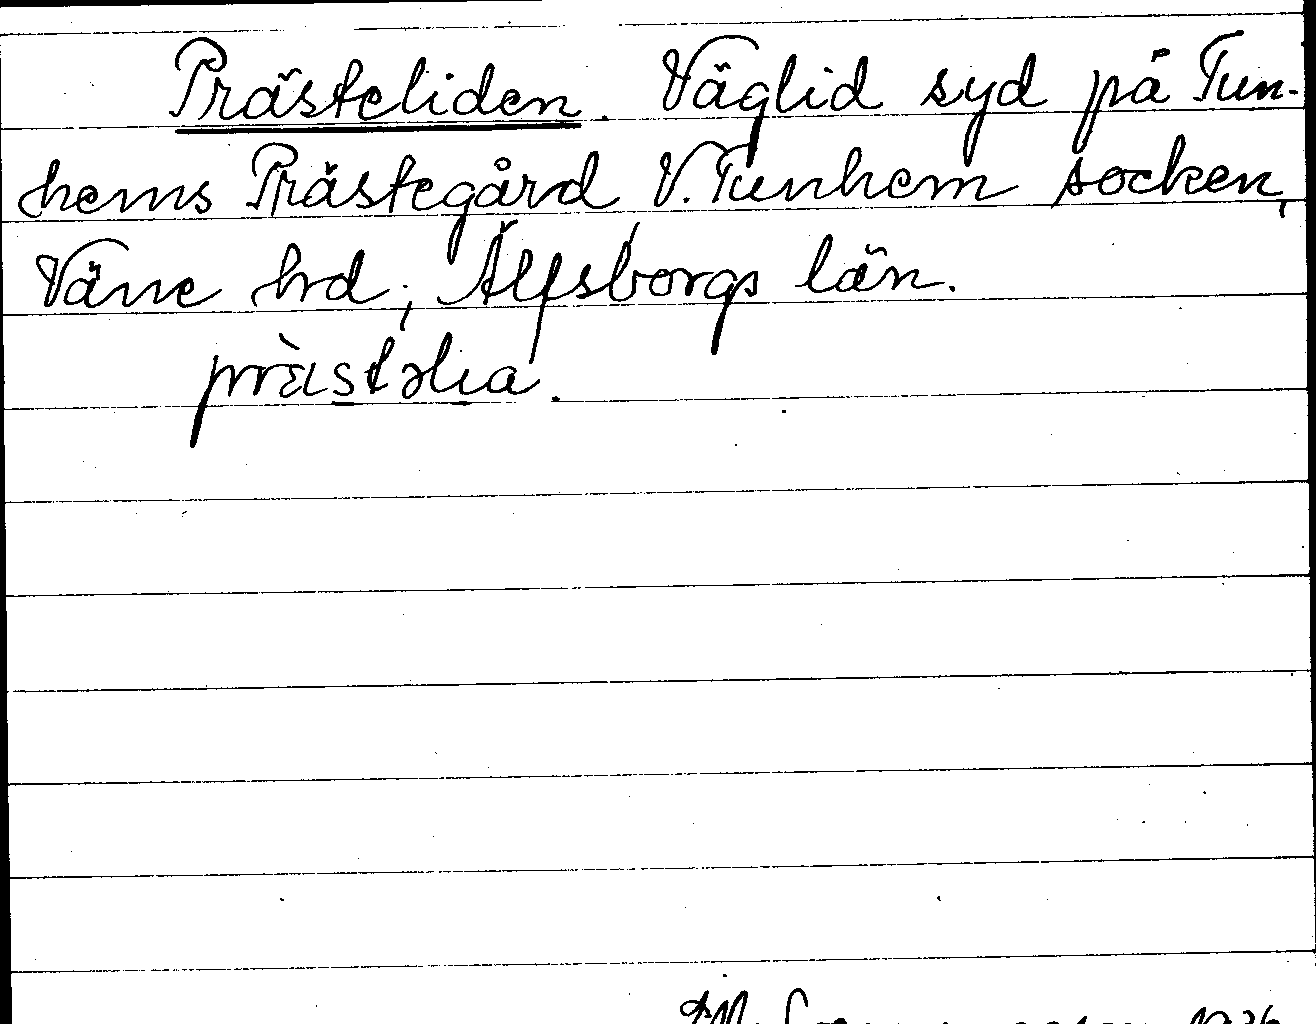 Prästeliden. Väglid syd på Tun-
hems Prästegård V. Tunhem socken,
Väne hd, Älfsborgs län.
prὲistəlıa.